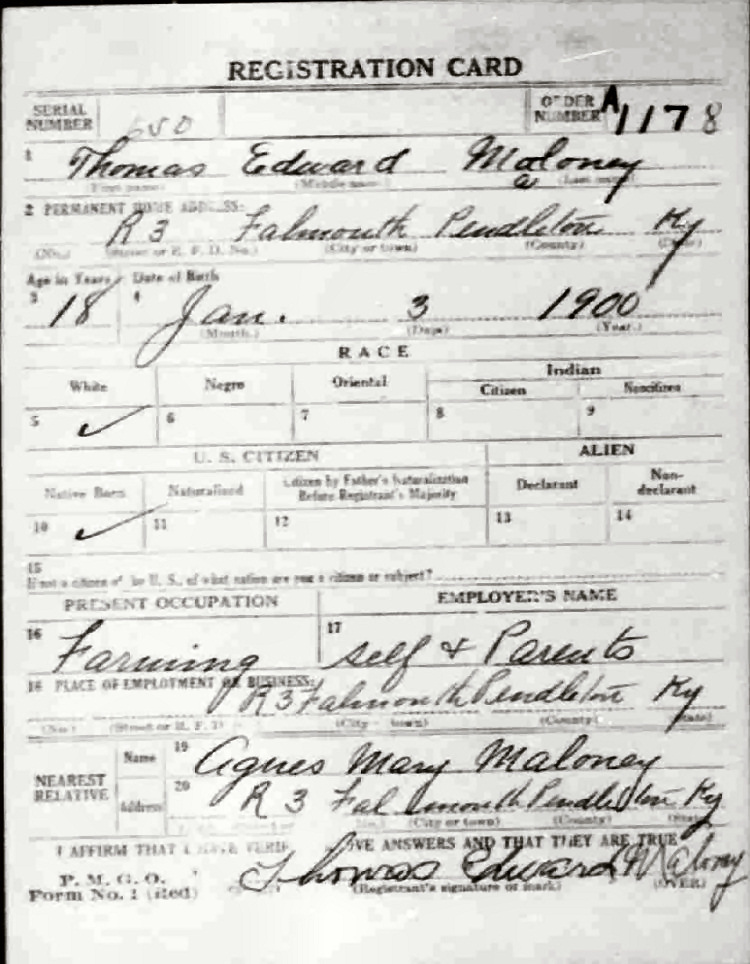 REGISTRATION CARD
SERIAL NUMBER 650 ORDER NUMBER A 1178
1 Thomas Edward Maloney
a
(First name) (Middle name) (Last name)
2 PERMANENT HOME ADDRESS:
R 3 Falmouth Pendleton Ky
(No.) (Street or R. F. D. No.) (City or town) (County) (State)
Age in Years Date of Birth
3 18 4 Jan. 3 1900
(Month.) (Day.) (Year.)
RACE
White Negro Oriental Indian
Citizen Noncitizen
5 ✓ 6 7 8 9
U. S. CITIZEN ALIEN
Native Born Naturalized Citizen by Father's Naturalization Before Registrant's Majority Declarant Non-declarant
10 ✓ 11 12 13 14
15
If not a citizen of the U. S., of what nation are you a citizen or subject?
PRESENT OCCUPATION EMPLOYER'S NAME
16 Farming 17 self & Parents
18 PLACE OF EMPLOYMENT OR BUSINESS:
R 3 Falmouth Pendleton Ky
(No.) (Street or R. F. D.) (City town) (County) (State)
NEAREST RELATIVE Name 19 Agnes Mary Maloney
Address 20 R 3 Falmouth Pendleton Ky
(No.) (City or town) (County) (State)
I AFFIRM THAT I HAVE VERIF IVE ANSWERS AND THAT THEY ARE TRUE
P. M. G. O.
Form No. 1 (Red) Thomas Edward Malony
(Registrant's signature or mark) (OVER)